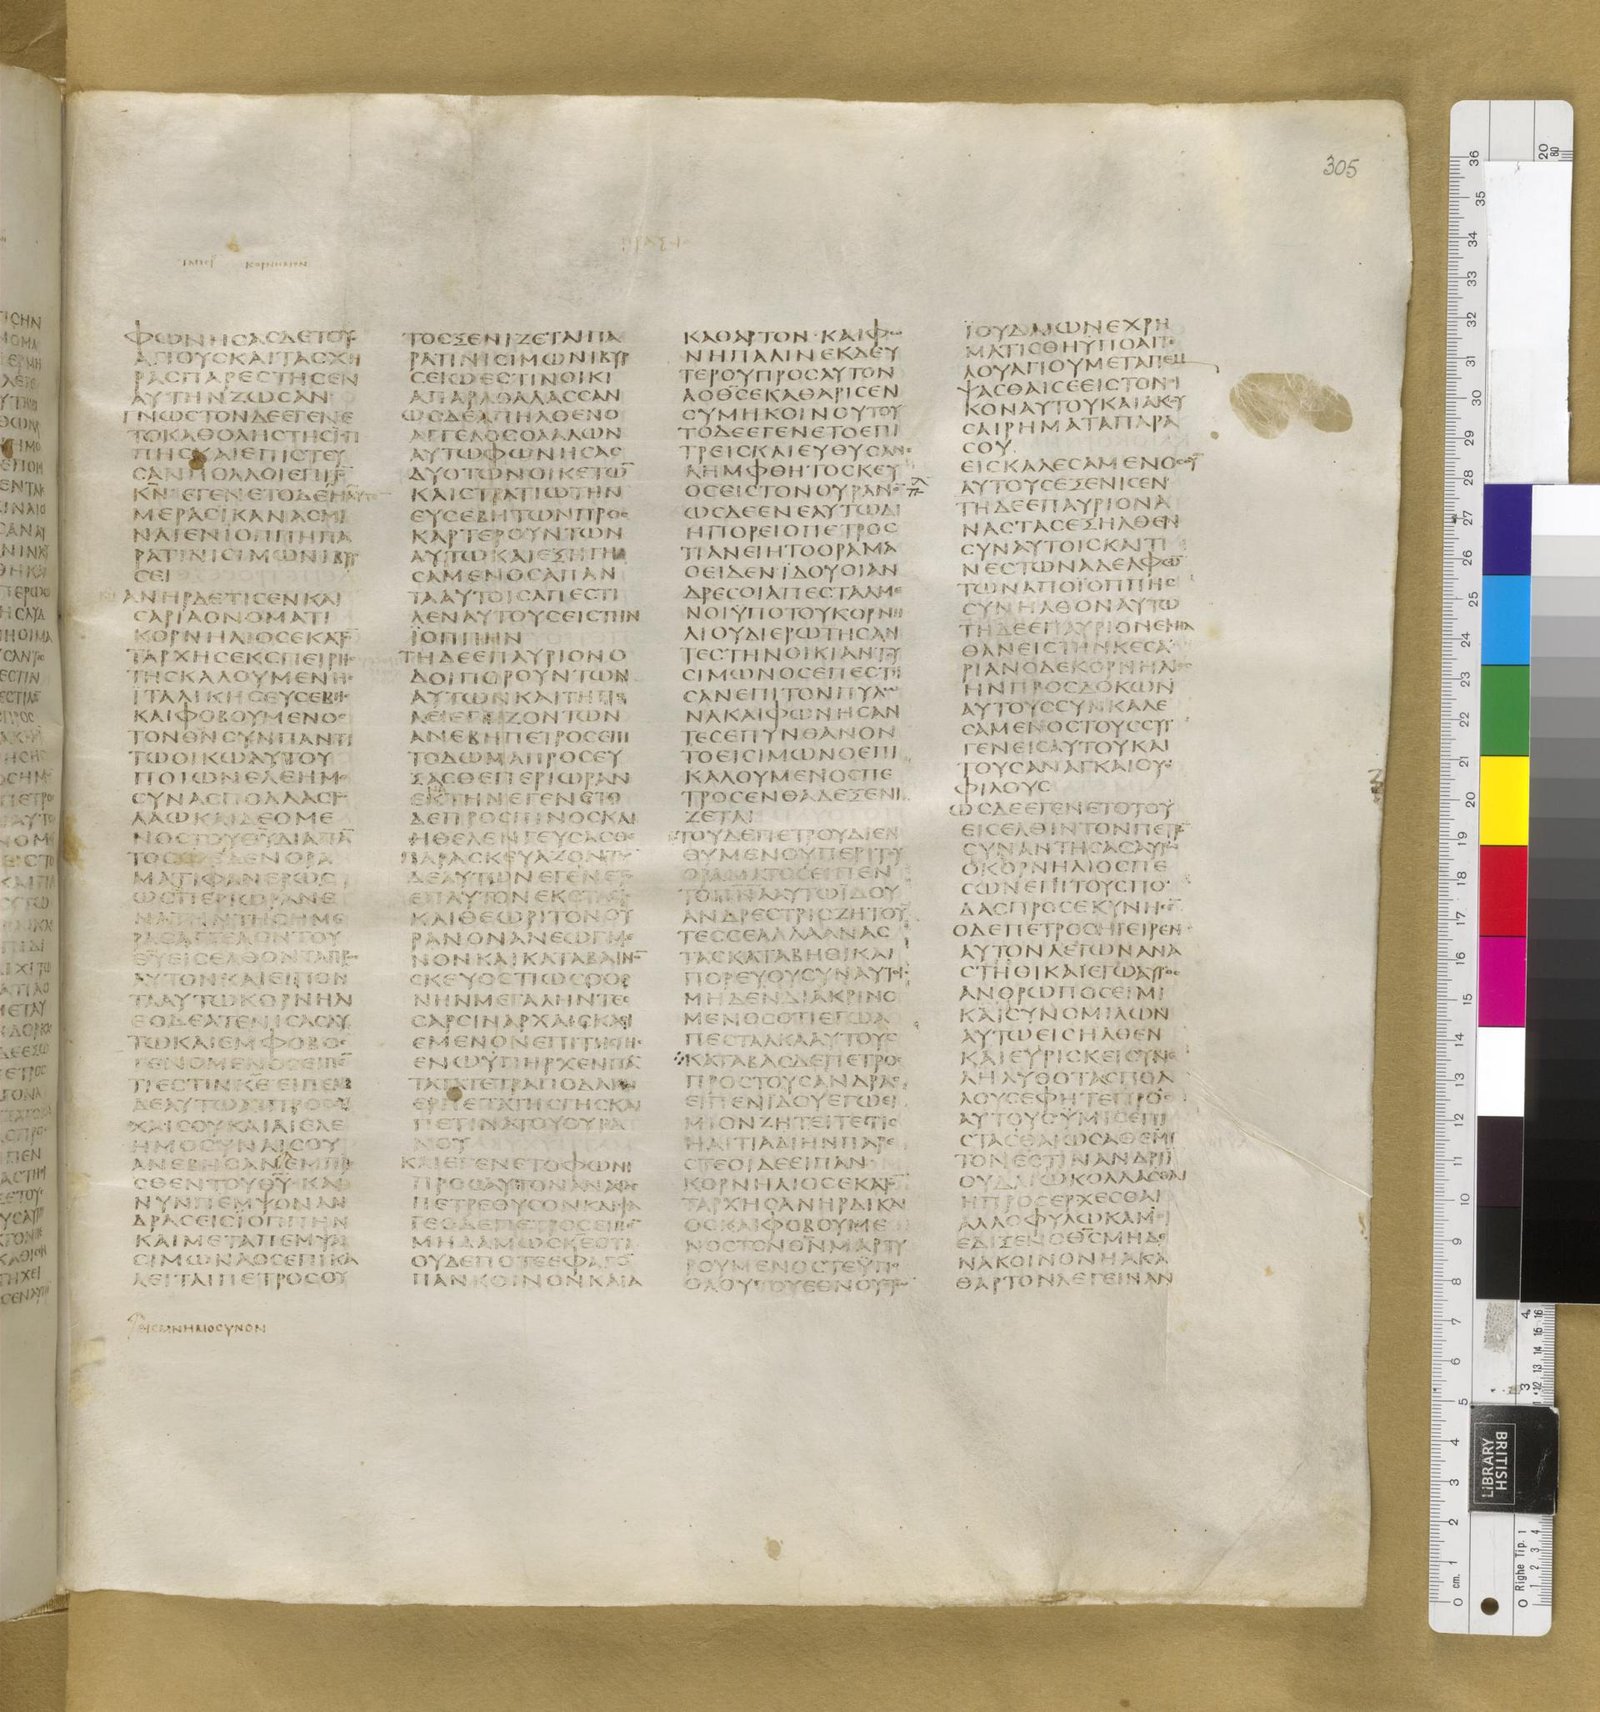 305
ΠΡΑΞΙϹ
ΦΩΝΗϹΑϹΔΕΤΟΥϹ
ΑΓΙΟΥϹΚΑΙΤΑϹΧΗ
ΡΑϹΠΑΡΕϹΤΗϹΕΝ
ΑΥΤΗΝΖΩϹΑΝ
ΓΝΩϹΤΟΝΔΕΕΓΕΝΕ
ΤΟΚΑΘΟΛΗϹΤΗϹΪΟΠ
ΠΗϹΚΑΙΕΠΙϹΤΕΥ
ϹΑΝΠΟΛΛΟΙΕΠΙΤΟ̅
Κ̅Ν̅ ΕΓΕΝΕΤΟΔΕΗ
ΜΕΡΑϹΙΚΑΝΑϹΜΙ
ΝΑΙΕΝΙΟΠΠΗΠΑ
ΡΑΤΙΝΙϹΙΜΩΝΙΒΥΡ
ϹΕΙ
ΑΝΗΡΔΕΤΙϹΕΝΚΑΙ
ϹΑΡΙΑΟΝΟΜΑΤΙ
ΚΟΡΝΗΛΙΟϹΕΚΑΤΟ̅
ΤΑΡΧΗϹΕΚϹΠΕΙΡΗϹ
ΤΗϹΚΑΛΟΥΜΕΝΗϹ
ΙΤΑΛΙΚΗϹΕΥϹΕΒΗϹ
ΚΑΙΦΟΒΟΥΜΕΝΟϹ
ΤΟΝΘ̅Ν̅ϹΥΝΠΑΝΤΙ
ΤΩΟΙΚΩΑΥΤΟΥ
ΠΟΙΩΝΕΛΕΗΜΟ
ϹΥΝΑϹΠΟΛΛΑϹΤΩ
ΛΑΩΚΑΙΔΕΟΜΕ
ΝΟϹΤΟΥΘ̅Υ̅ΔΙΑΠΑ̅
ΤΟϹ ΕΙΔΕΝΟΡΑ
ΜΑΤΙΦΑΝΕΡΩϹ
ΩϹΠΕΡΙΩΡΑΝΕ
ΝΑΤΗΝΤΗϹΗΜΕ
ΡΑϹΑΓΓΕΛΟΝΤΟΥ
Θ̅Υ̅ΕΙϹΕΛΘΟΝΤΑΠΡΟϹ
ΑΥΤΟΝΚΑΙΕΙΠΟΝ
ΤΑΑΥΤΩΚΟΡΝΗΛΙ
ΕΟΔΕΑΤΕΝΙϹΑϹΑΥ
ΤΩΚΑΙΕΜΦΟΒΟϹ
ΓΕΝΟΜΕΝΟϹΕΙΠΕ̅
ΤΙΕϹΤΙΝΚ̅Ε̅ΕΙΠΕΝ
ΔΕΑΥΤΩΑΙΠΡΟϹΕΥ
ΧΑΙϹΟΥΚΑΙΑΙΕΛΕ
ΗΜΟϹΥΝΑΙϹΟΥ
ΑΝΕΒΗϹΑΝ ΕΜΠΡΟ
ϹΘΕΝΤΟΥΘ̅Υ̅ΚΑΙ
ΝΥΝΠΕΜΨΟΝΑΝ
ΔΡΑϹΕΙϹΪΟΠΠΗΝ
ΚΑΙΜΕΤΑΠΕΜΨΑΙ
ϹΙΜΩΝΑΟϹΕΠΙΚΑ
ΛΕΙΤΑΙΠΕΤΡΟϹΟΥ
ΤΟϹΞΕΝΙΖΕΤΑΙΠΑ
ΡΑΤΙΝΙϹΙΜΩΝΙΒΥΡ
ϹΕΙΩΕϹΤΙΝΟΙΚΙ
ΑΠΑΡΑΘΑΛΑϹϹΑΝ
ΩϹΔΕΑΠΗΛΘΕΝΟ
ΑΓΓΕΛΟϹΟΛΑΛΩΝ
ΑΥΤΩΦΩΝΗϹΑϹ
ΔΥΟΤΩΝΟΙΚΕΤΩ̅
ΚΑΙϹΤΡΑΤΙΩΤΗΝ
ΕΥϹΕΒΗΤΩΝΠΡΟϹ
ΚΑΡΤΕΡΟΥΝΤΩΝ
ΑΥΤΩΚΑΙΕΞΗΓΗ
ϹΑΜΕΝΟϹΑΠΑΝ
ΤΑΑΥΤΟΙϹΑΠΕϹΤΙ
ΛΕΝΑΥΤΟΥϹΕΙϹΤΗΝ
ΪΟΠΠΗΝ
ΤΗΔΕΕΠΑΥΡΙΟΝΟ
ΔΟΙΠΟΡΟΥΝΤΩΝ
ΑΥΤΩΝΚΑΙΤΗΠΟ
ΛΕΙΕΓΓΙΖΟΝΤΩΝ
ΑΝΕΒΗΠΕΤΡΟϹΕΠΙ
ΤΟΔΩΜΑΠΡΟϹΕΥ
ΞΑϹΘΕΠΕΡΙΩΡΑΝ
ΕΚΤΗΝΕΓΕΝΕΤΟ
ΔΕΠΡΟϹΠΙΝΟϹΚΑΙ
ΗΘΕΛΕΝΓΕΥϹΑϹΘΕ
ΠΑΡΑϹΚΕΥΑΖΟΝΤΩ̅
ΔΕΑΥΤΩΝΕΓΕΝΕΤΟ
ΕΠΑΥΤΟΝΕΚϹΤΑϹΙϹ
ΚΑΙΘΕΩΡΙΤΟΝΟΥ
ΡΑΝΟΝΑΝΕΩΓΜΕ
ΝΟΝΚΑΙΚΑΤΑΒΑΙΝΟ̅
ϹΚΕΥΟϹΤΙΩϹΟΘΟ
ΝΗΝΜΕΓΑΛΗΝΤΕϹ
ϹΑΡϹΙΝΑΡΧΑΙϹΚΑΘΙ
ΕΜΕΝΟΝΕΠΙΤΗϹΓΗϹ
ΕΝΩΫΠΗΡΧΕΝΠΑ̅
ΤΑΤΑΤΕΤΡΑΠΟΔΑΚΑΙ
ΕΡΠΕΤΑΤΗϹΓΗϹΚΑΙ
ΠΕΤΙΝΑΤΟΥΟΥΡΑ
ΝΟΥ
ΚΑΙΕΓΕΝΕΤΟΦΩΝΗ
ΠΡΟϹΑΥΤΟΝΑΝΑϹΤΑϹ
ΠΕΤΡΕΘΥϹΟΝΚΑΙΦΑ
ΓΕΟΔΕΠΕΤΡΟϹΕΙΠΕ̅
ΜΗΔΑΜΩϹΚ̅Ε̅ΟΤΙ
ΟΥΔΕΠΟΤΕΕΦΑΓΟ̅
ΠΑΝΚΟΙΝΟΝΚΑΙΑ
ΚΑΘΑΡΤΟΝ ΚΑΙΦΩ
ΝΗΠΑΛΙΝΕΚΔΕΥ
ΤΕΡΟΥΠΡΟϹΑΥΤΟΝ
ΑΟΘ̅Ϲ̅ΕΚΑΘΑΡΙϹΕΝ
ϹΥΜΗΚΟΙΝΟΥΤΟΥ
ΤΟΔΕΕΓΕΝΕΤΟΕΠΙ
ΤΡΕΙϹΚΑΙΕΥΘΥϹΑΝΕ
ΛΗΜΦΘΗΤΟϹΚΕΥ
ΟϹΕΙϹΤΟΝΟΥΡΑΝΟ̅
ΩϹΔΕΕΝΕΑΥΤΩΔΙ
ΗΠΟΡΕΙΟΠΕΤΡΟϹ
ΤΙΑΝΕΙΗΤΟΟΡΑΜΑ
ΟΕΙΔΕΝΪΔΟΥΟΙΑΝ
ΔΡΕϹΟΙΑΠΕϹΤΑΛΜΕ
ΝΟΙΫΠΟΤΟΥΚΟΡΝΗ
ΛΙΟΥΔΙΕΡΩΤΗϹΑΝ
ΤΕϹΤΗΝΟΙΚΙΑΝΤΟΥ
ϹΙΜΩΝΟϹΕΠΕϹΤΗ
ϹΑΝΕΠΙΤΟΝΠΥΛΩ
ΝΑΚΑΙΦΩΝΗϹΑΝ
ΤΕϹΕΠΥΝΘΑΝΟΝ
ΤΟΕΙϹΙΜΩΝΟΕΠΙ
ΚΑΛΟΥΜΕΝΟϹΠΕ
ΤΡΟϹΕΝΘΑΔΕΞΕΝΙ
ΖΕΤΑΙ
ΤΟΥΔΕΠΕΤΡΟΥΔΙΕΝ
ΘΥΜΕΝΟΥΠΕΡΙΤΟΥ
ΟΡΑΜΑΤΟϹΕΙΠΕΝ
ΤΟΠ̅Ν̅ΑΑΥΤΩΪΔΟΥ
ΑΝΔΡΕϹΤΡΙϹΖΗΤΟΥ̅
ΤΕϹϹΕΑΛΛΑΑΝΑϹ
ΤΑϹΚΑΤΑΒΗΘΙΚΑΙ
ΠΟΡΕΥΟΥϹΥΝΑΥΤΟΙϹ
ΜΗΔΕΝΔΙΑΚΡΙΝΟ
ΜΕΝΟϹΟΤΙΕΓΩΑ
ΠΕϹΤΑΛΚΑΑΥΤΟΥϹ
ΚΑΤΑΒΑϹΔΕΠΕΤΡΟϹ
ΠΡΟϹΤΟΥϹΑΝΔΡΑϹ
ΕΙΠΕΝΪΔΟΥΕΓΩΕΙ
ΜΙΟΝΖΗΤΕΙΤΕΤΙϹ
ΗΑΙΤΙΑΔΙΗΝΠΑΡΕ
ϹΤΕΟΙΔΕΕΙΠΑΝ
ΚΟΡΝΗΛΙΟϹΕΚΑΤΟ̅
ΤΑΡΧΗϹΑΝΗΡΔΙΚΑΙ
ΟϹΚΑΙΦΟΒΟΥΜΕ
ΝΟϹΤΟΝΘ̅Ν̅ΜΑΡΤΥ
ΡΟΥΜΕΝΟϹΤΕΫΠΟ
ΟΛΟΥΤΟΥΕΘΝΟΥϹΤΩ̅
ΪΟΥΔΑΙΩΝΕΧΡΗ
ΜΑΤΙϹΘΗΥΠΟΑΓΓΕ
ΛΟΥΑΓΙΟΥΜΕΤΑΠΕΜ
ΨΑϹΘΑΙϹΕΕΙϹΤΟΝΟΙ
ΚΟΝΑΥΤΟΥΚΑΙΑΚΟΥ
ϹΑΙΡΗΜΑΤΑΠΑΡΑ
ϹΟΥ
ΕΙϹΚΑΛΕϹΑΜΕΝΟϹΟΥ̅
ΑΥΤΟΥϹΕΞΕΝΙϹΕΝ
ΤΗΔΕΕΠΑΥΡΙΟΝΑ
ΝΑϹΤΑϹΕΞΗΛΘΕΝ
ϹΥΝΑΥΤΟΙϹΚΑΙΤΙ
ΝΕϹΤΩΝΑΔΕΛΦΩ̅
ΤΩΝΑΠΟΪΟΠΠΗϹ
ϹΥΝΗΛΘΟΝΑΥΤΩ
ΤΗΔΕΕΠΑΥΡΙΟΝΕΙϹΗΛ
ΘΑΝΕΙϹΤΗΝΚΕϹΑ
ΡΙΑΝΟΔΕΚΟΡΝΗΛΙΟϹ
ΗΝΠΡΟϹΔΟΚΩΝ
ΑΥΤΟΥϹϹΥΝΚΑΛΕ
ϹΑΜΕΝΟϹΤΟΥϹϹΥΓ
ΓΕΝΕΙϹΑΥΤΟΥΚΑΙ
ΤΟΥϹΑΝΑΓΚΑΙΟΥϹ
ΦΙΛΟΥϹ
ΩϹΔΕΕΓΕΝΕΤΟΤΟΥ
ΕΙϹΕΛΘΙΝΤΟΝΠΕΤΡΟ̅
ϹΥΝΑΝΤΗϹΑϹΑΥΤΩ
ΟΚΟΡΝΗΛΙΟϹΠΕ
ϹΩΝΕΠΙΤΟΥϹΠΟ
ΔΑϹΠΡΟϹΕΚΥΝΗϹΕ̅
ΟΔΕΠΕΤΡΟϹΗΓΕΙΡΕΝ
ΑΥΤΟΝΛΕΓΩΝΑΝΑ
ϹΤΗΘΙΚΑΙΕΓΩΑΥΤΟϹ
ΑΝΘΡΩΠΟϹΕΙΜΙ
ΚΑΙϹΥΝΟΜΙΛΩΝ
ΑΥΤΩΕΙϹΗΛΘΕΝ
ΚΑΙΕΥΡΙϹΚΕΙϹΥΝΕ
ΛΗΛΥΘΟΤΑϹΠΟΛ
ΛΟΥϹΕΦΗΤΕΠΡΟϹ
ΑΥΤΟΥϹΫΜΙϹΕΠΙ
ϹΤΑϹΘΑΙΩϹΑΘΕΜΙ
ΤΟΝΕϹΤΙΝΑΝΔΡΙΪ
ΟΥΔΑΙΩΚΟΛΛΑϹΘΑΙ
ΗΠΡΟϹΕΡΧΕϹΘΑΙ
ΑΛΛΟΦΥΛΩΚΑΜΟΙ
ΕΔΙΞΕΝΟΘ̅Ϲ̅ΜΗΔΕ
ΝΑΚΟΙΝΟΝΗΑΚΑ
ΘΑΡΤΟΝΛΕΓΕΙΝΑΝ
BRITISH
LIBRARY